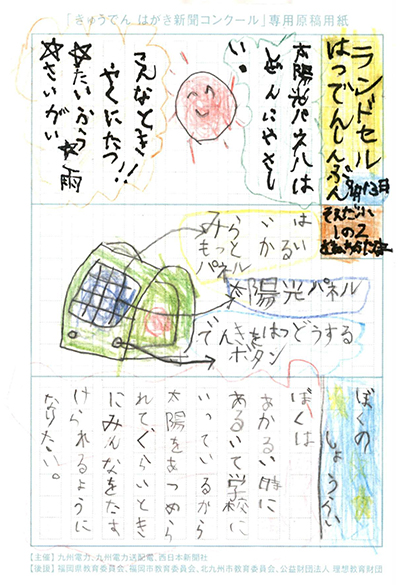 「きゅうでん はがき新聞コンクール」専用原稿用紙
ランドセル
はつでんしんぶん
そえだ小
1の2
太陽光パネルは
しぜんにやさし
い。
こんなとき!!
やくにたつ
☆たいふう ☆雨
☆さいがい
もっと
パネル
太陽光パネル
でんきをはつどうする
ボタン
ぼくの
しょうらい
ぼくは
あかるい時に
あるいて学校に
いっているから
太陽をあつめら
れて、くらいとき
にみんなをたす
けられるように
なりたい。
【主催】九州電力、九州電力送配電、西日本新聞社
【後援】福岡県教育委員会、福岡市教育委員会、北九州市教育委員会、公益財団法人 理想教育財団